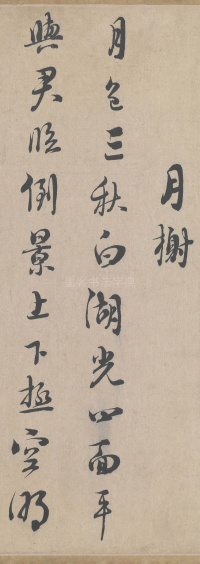 月榭
月色三秋白湖光四面平
與君臨倒景上下極空明